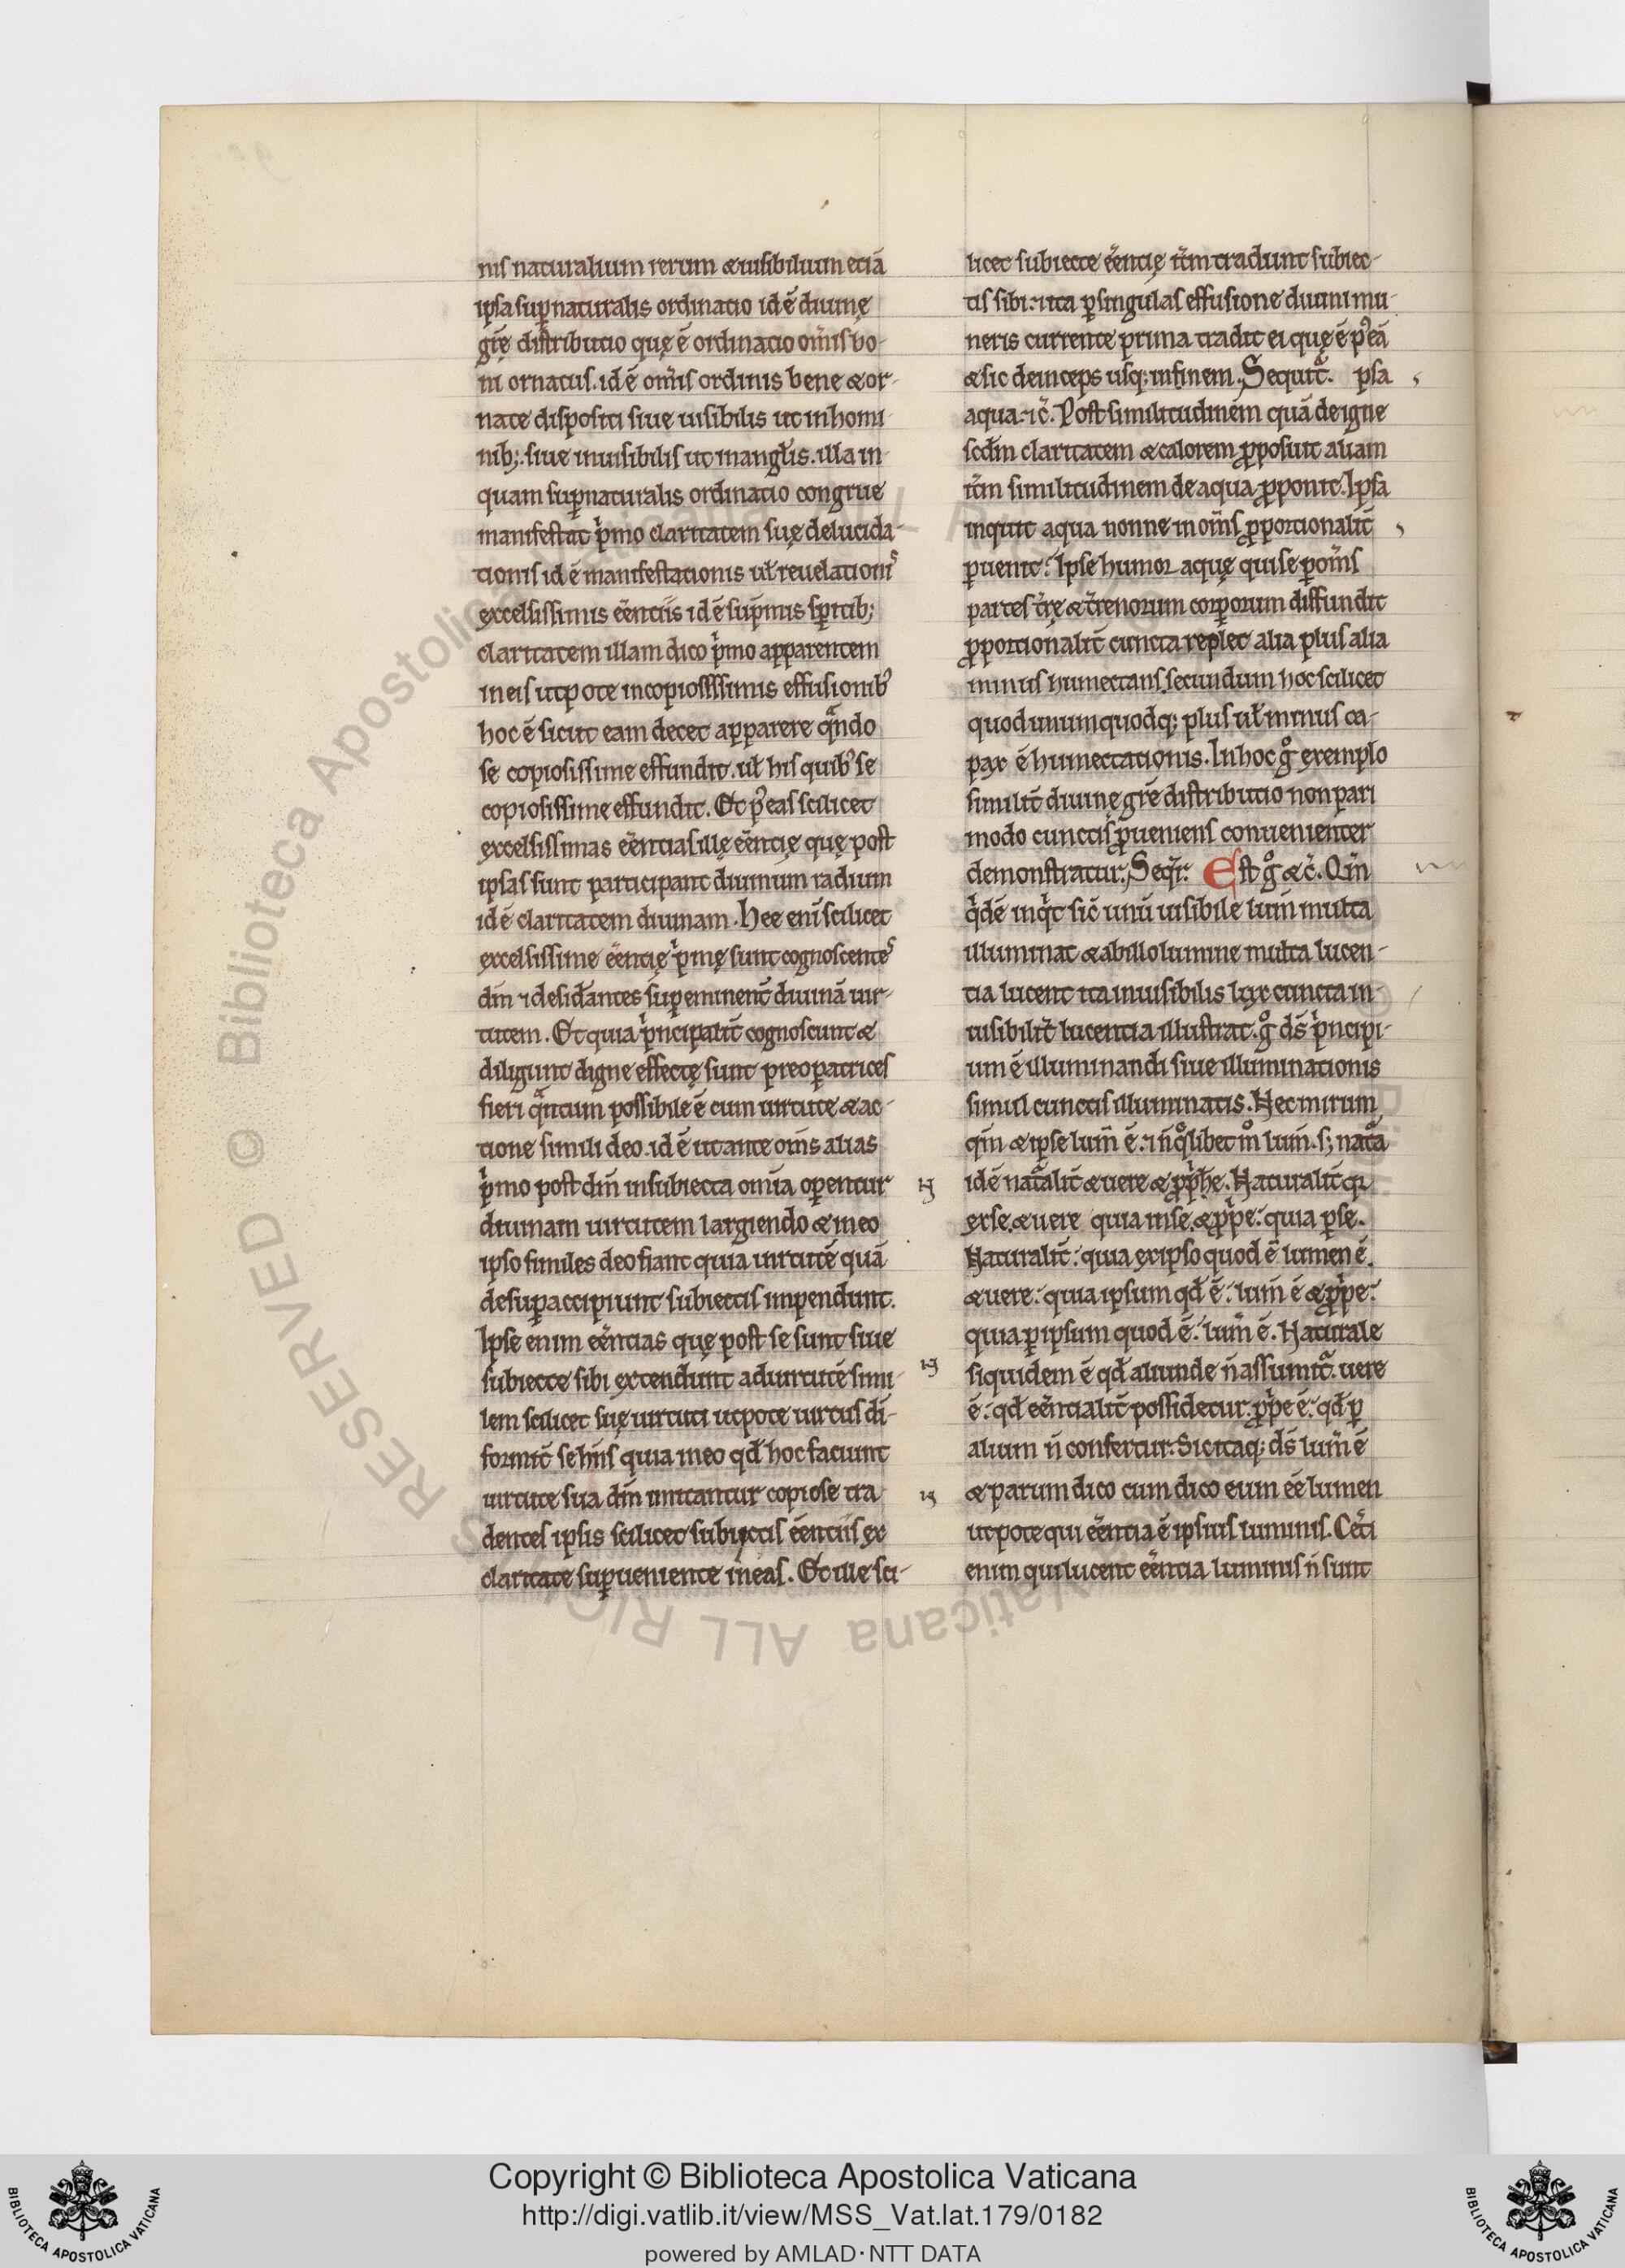 nis naturalium rerum & uisibilium eciā
ipsa suꝑnaturalis ordinatio id ē diuinę
grę̄ distributio quę ē ordinatio om̄is bo-
ni ornatus. id ē om̄is ordinis bene & or-
nate dispositi siue uisibilis ut in homi-
nib; siue inuisibilis ut in angłis. illa in-
quam suꝑnaturalis ordinatio congrue
manifestat pͥmo claritatem suę delucida-
tionis id ē manifestationis uł reuelationiˢ
excelsissimis eēntiis id ē sup̄mis spītib;
claritatem illam dico pͥmo apparentem
in eis utpote in copiosissimis effusionibꝰ
hoc ē sicut eam decet apparere qᷓndo
se copiosissime effundit. uł his quibꝰ se
copiosissime effundit. Et pꝰ eas scilicet
excelsissimas eēntias illę eēntię quę post
ipsas sunt participant diuinum radium
id ē claritatem diuinam. Hee eni̅ scilicet
excelsissime eēntię pͥmę sunt cognoscenteˢ
dm̄ ⁊ desid̄antes suꝑeminent̄ diuinā uir-
tutem. Et quia pͥncipalit̄ cognoscunt &
diligunt digne effectę sunt preoꝑatrices
fieri qᷓntum possibile ē cum uirtute & ac-
tione simili deo. id ē ut ante om̄s alias
pͥmo post dm̄ in subiecta om̄ia oꝑentur
diuinam uirtutem largiendo & in eo
ipso similes deo fiant quia uirtutē quā
desuꝑ accipiunt subiectis impendunt.
Ipse enim eēntias quę post se sunt siue
subiecte sibi extendunt ad uirtutē simi-
lem scilicet suę uirtuti utpote uirtus di-
formit̄ se hn̄s quia in eo qđ hoc faciunt
uirtute sua dm̄ imitantur copiose tra
dentes ipsis scilicet subiectis eēntiis ex
claritate suꝑueniente in eas. Et ille sci-
licet subiecte eēntię itm̄ tradunt subiec-
tis sibi: ⁊ ita ꝑ singulas effusione diuini mu-
neris currente prima tradit ei quę ē pꝰ eā
& sic deinceps usq; in finem. Sequit᷑. psa
aqua. ⁊c̄. Post similitudinem quā de igne
scđm claritatem & calorem ꝓposuit aliam
itm̄ similitudinem de aqua ꝓponit. Ipsa
inquit aqua nonne in om̄s ꝓportionalit̄
ꝑuenit? Ipse humor aquę qui se ꝑ om̄s
partes t̄rę & t̄renorum corporum diffundit
ꝓportionalit̄ cuncta replet alia plus alia
minus humectans. secundum hoc scilicet
quod unumquodq; plus uł minus ca-
pax ē humectationis. In hoc gͦ exemplo
similit̄ diuinę grę̄ distributio non pari
modo cunctis ꝓueniens conuenienter
demonstratur. Seqͥr. Est gͦ &c̄. Qm̄
qͥdē inqͥt sic̄ unū uisibile lum̄ multa
illuminat & ab illo lumine multa lucen-
tia lucent ita inuisibilis lux cuncta in-
uisibilit̄ lucentia illustrat. gͦ ds̄ pͥncipi-
um ē illuminandi siue illuminationis
simul cunctis illuminatis. Nec mirum
qm̄ & ipse lum̄ ē. ⁊ n̄ qͦlibet mͦ lum̄. s; natᷓa
id ē natᷓalit̄ & uere & ꝓpͥe. Naturalit̄ qꝛ
ex se. & uere quia in se. & ꝓpͥe: quia ꝑ se.
Naturalit̄: quia ex ipso quod ē lumen ē.
& uere: quia ipsum qđ ē: lum̄ ē & ꝓpͥe:
quia ꝑ ipsum quod ē: lum̄ ē. Naturale
siquidem ē qđ aliunde n̄ assumit᷑. uere
ē: qđ eēntialit̄ possidetur. ꝓpͥe ē: qđ ꝑ
alium n̄ confertur. Sic itaq; ds̄ lum̄ ē
& parum dico cum dico eum eē lumen
utpote qui eēntia ē ipsius luminis. Cet̄i
enim qui lucent eēntia luminis n̄ sunt
Copyright © Biblioteca Apostolica Vaticana
http://digi.vatlib.it/view/MSS_Vat.lat.179/0182
powered by AMLAD·NTT DATA
BIBLIOTECA APOSTOLICA VATICANA
BIBLIOTECA APOSTOLICA VATICANA
© Biblioteca Apostolica Vaticana ALL RIGHTS RESERVED